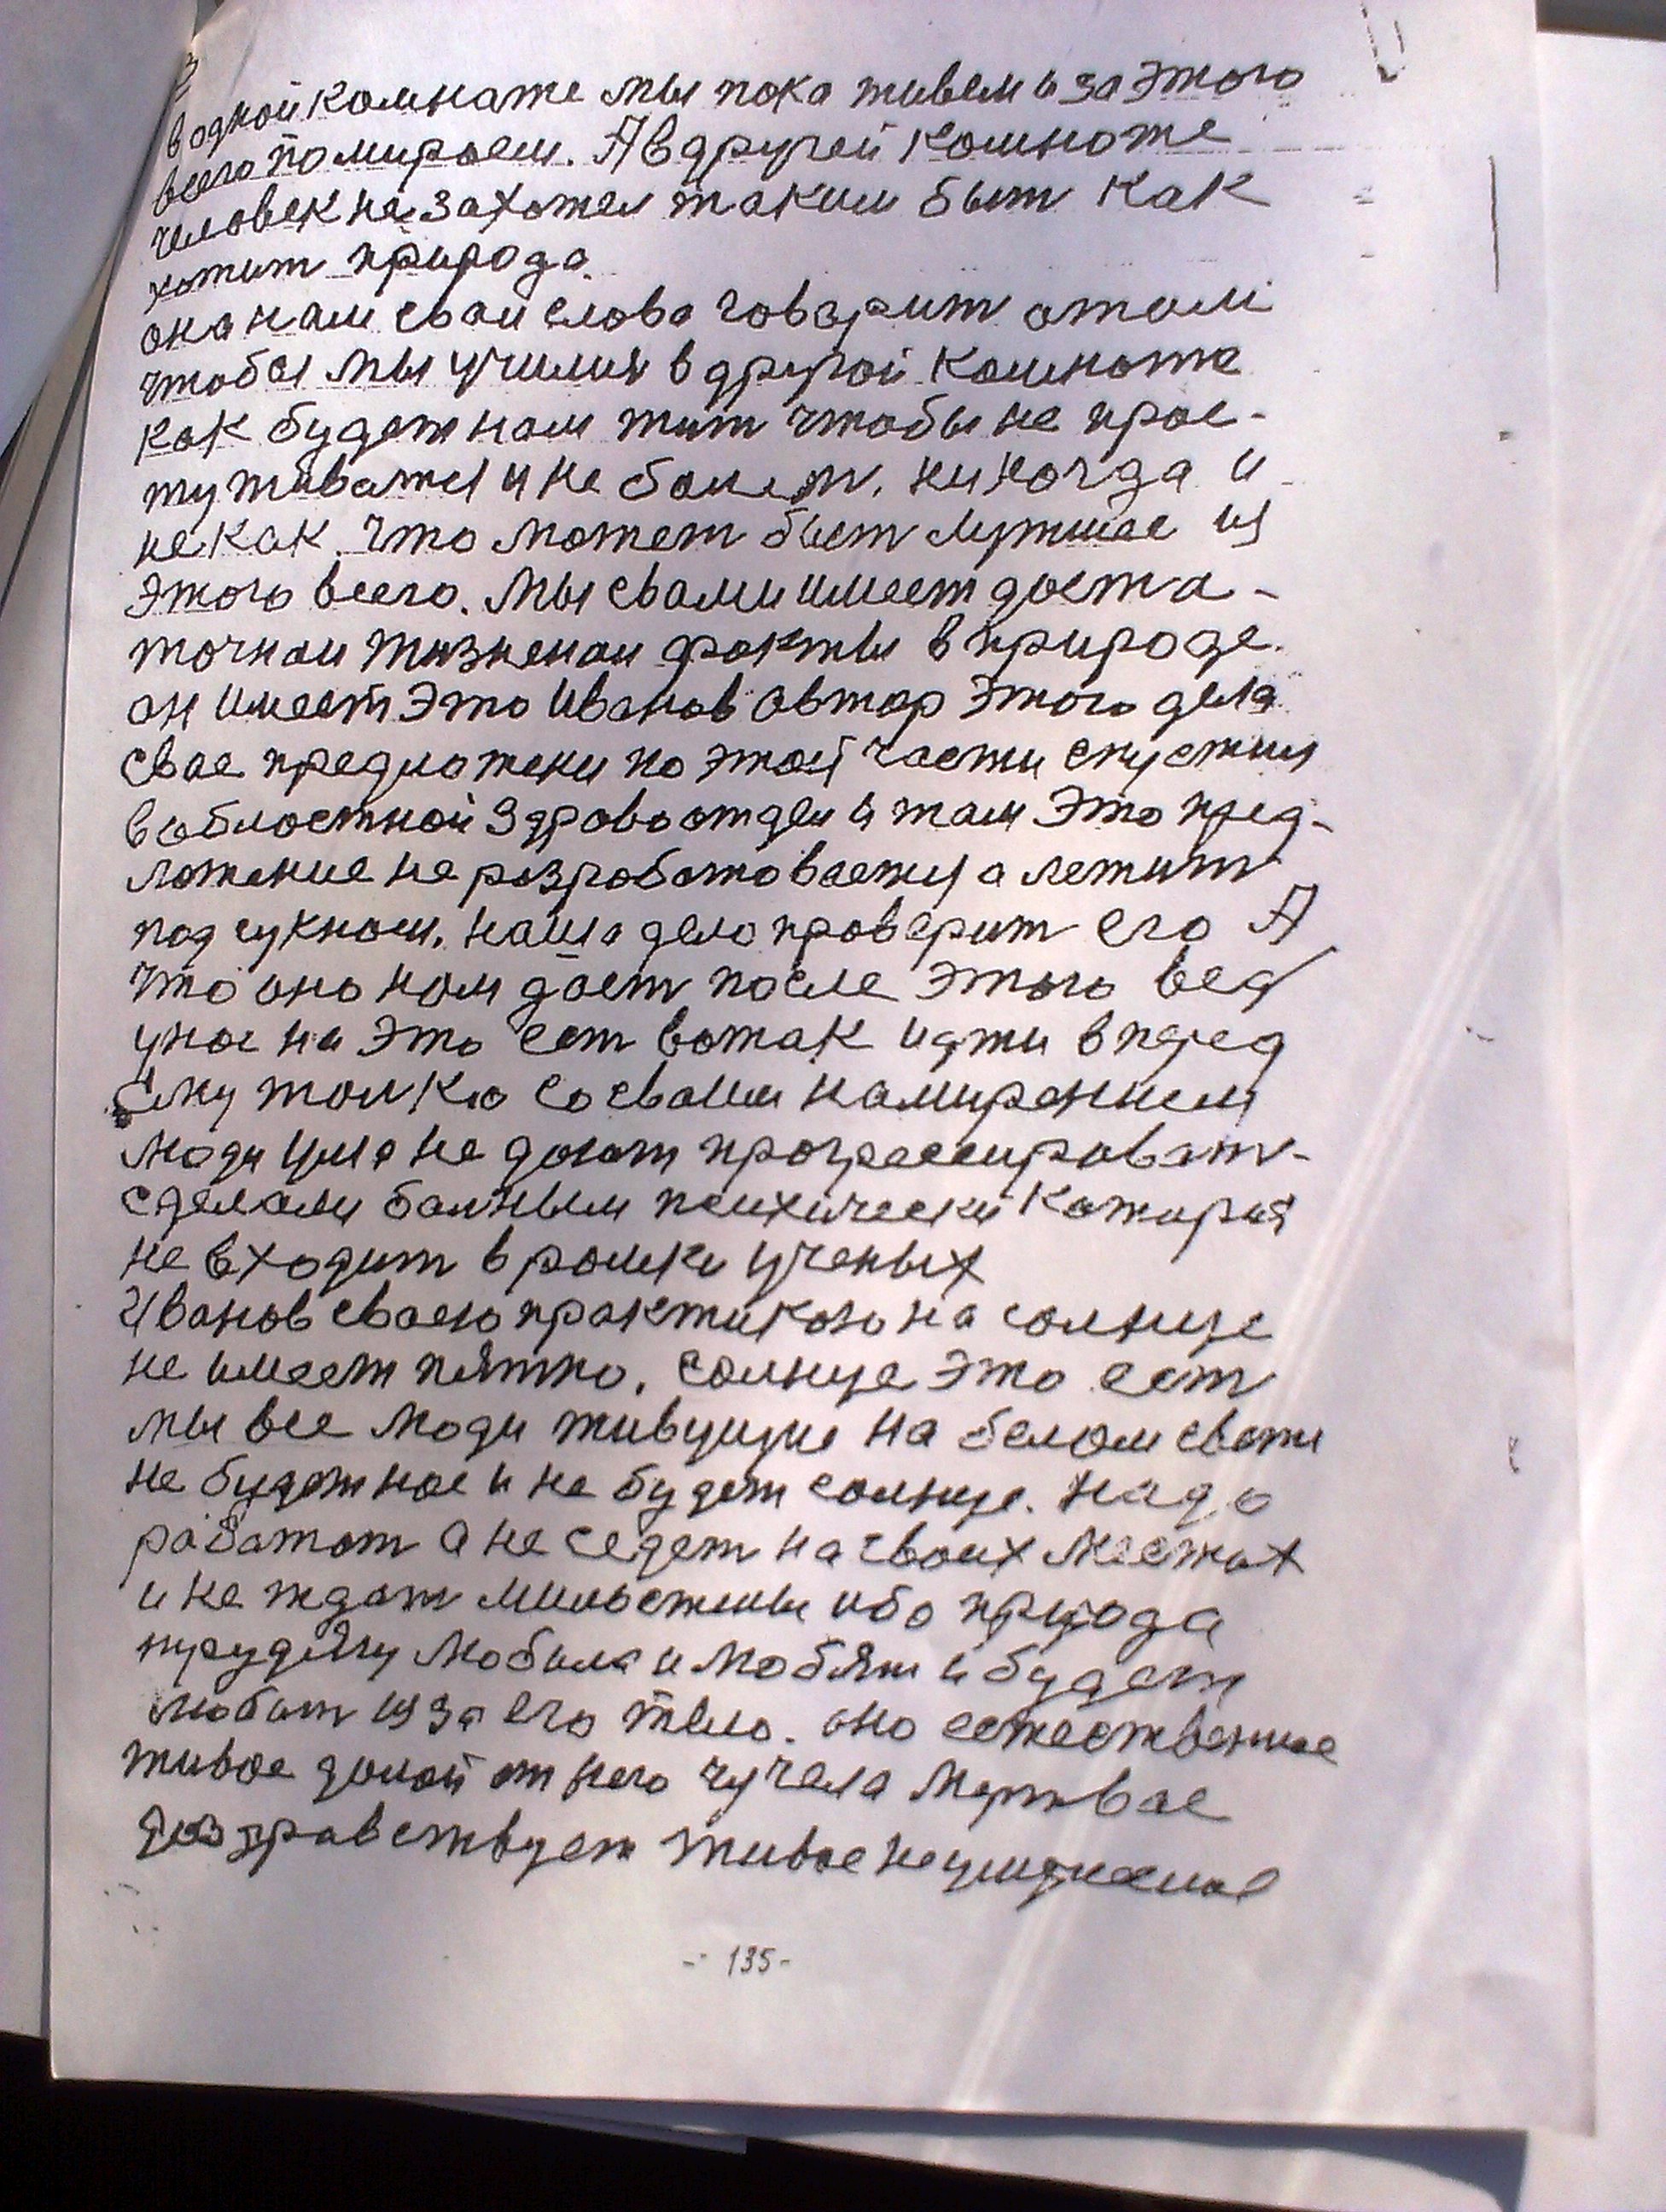 в одной комнате мы пока живем и за этого
всего помираем. А в другей комноте
человек не захотел таким быт как
хотит природа.
она нам сваи слова говарит отом
чтобы мы училия в другой комноте
как будет нам жит чтобы не прос-
туживатя и не болет. никогда и
некак. что может быт лутшее из
этого всего. Мы свами имеет доста-
точнаи жизненаи факты в природе.
он имеет это Иванов автор этого дела
свае предложени по этой части спустил
в облостной Здравоотдел и там это пред-
ложение не розроботоваетя а лежит
под сукном. наша дело проверит его А
что оно ном дает после этого вед
у нас на это ест вотак идти в перед
Ему толко со сваим намирением
Люди ция не дают прогрессироват-
сделали болным психически каторыя
не входит в ромки ученых
Иванов сваею практикою на солнце
не имеет пятно. солнце это ест
мы все Люди живущие на белом свете
не будет нас и не будет солнце. Надо
работат а не седет на своих местах
и не ждат милостины ибо природа
трудягу Любила и Любят и будет
Любит из за его тело. оно естественнае
живое долой от него чучела Мертвае
Даздравствует живое неумираемае
- 135 -